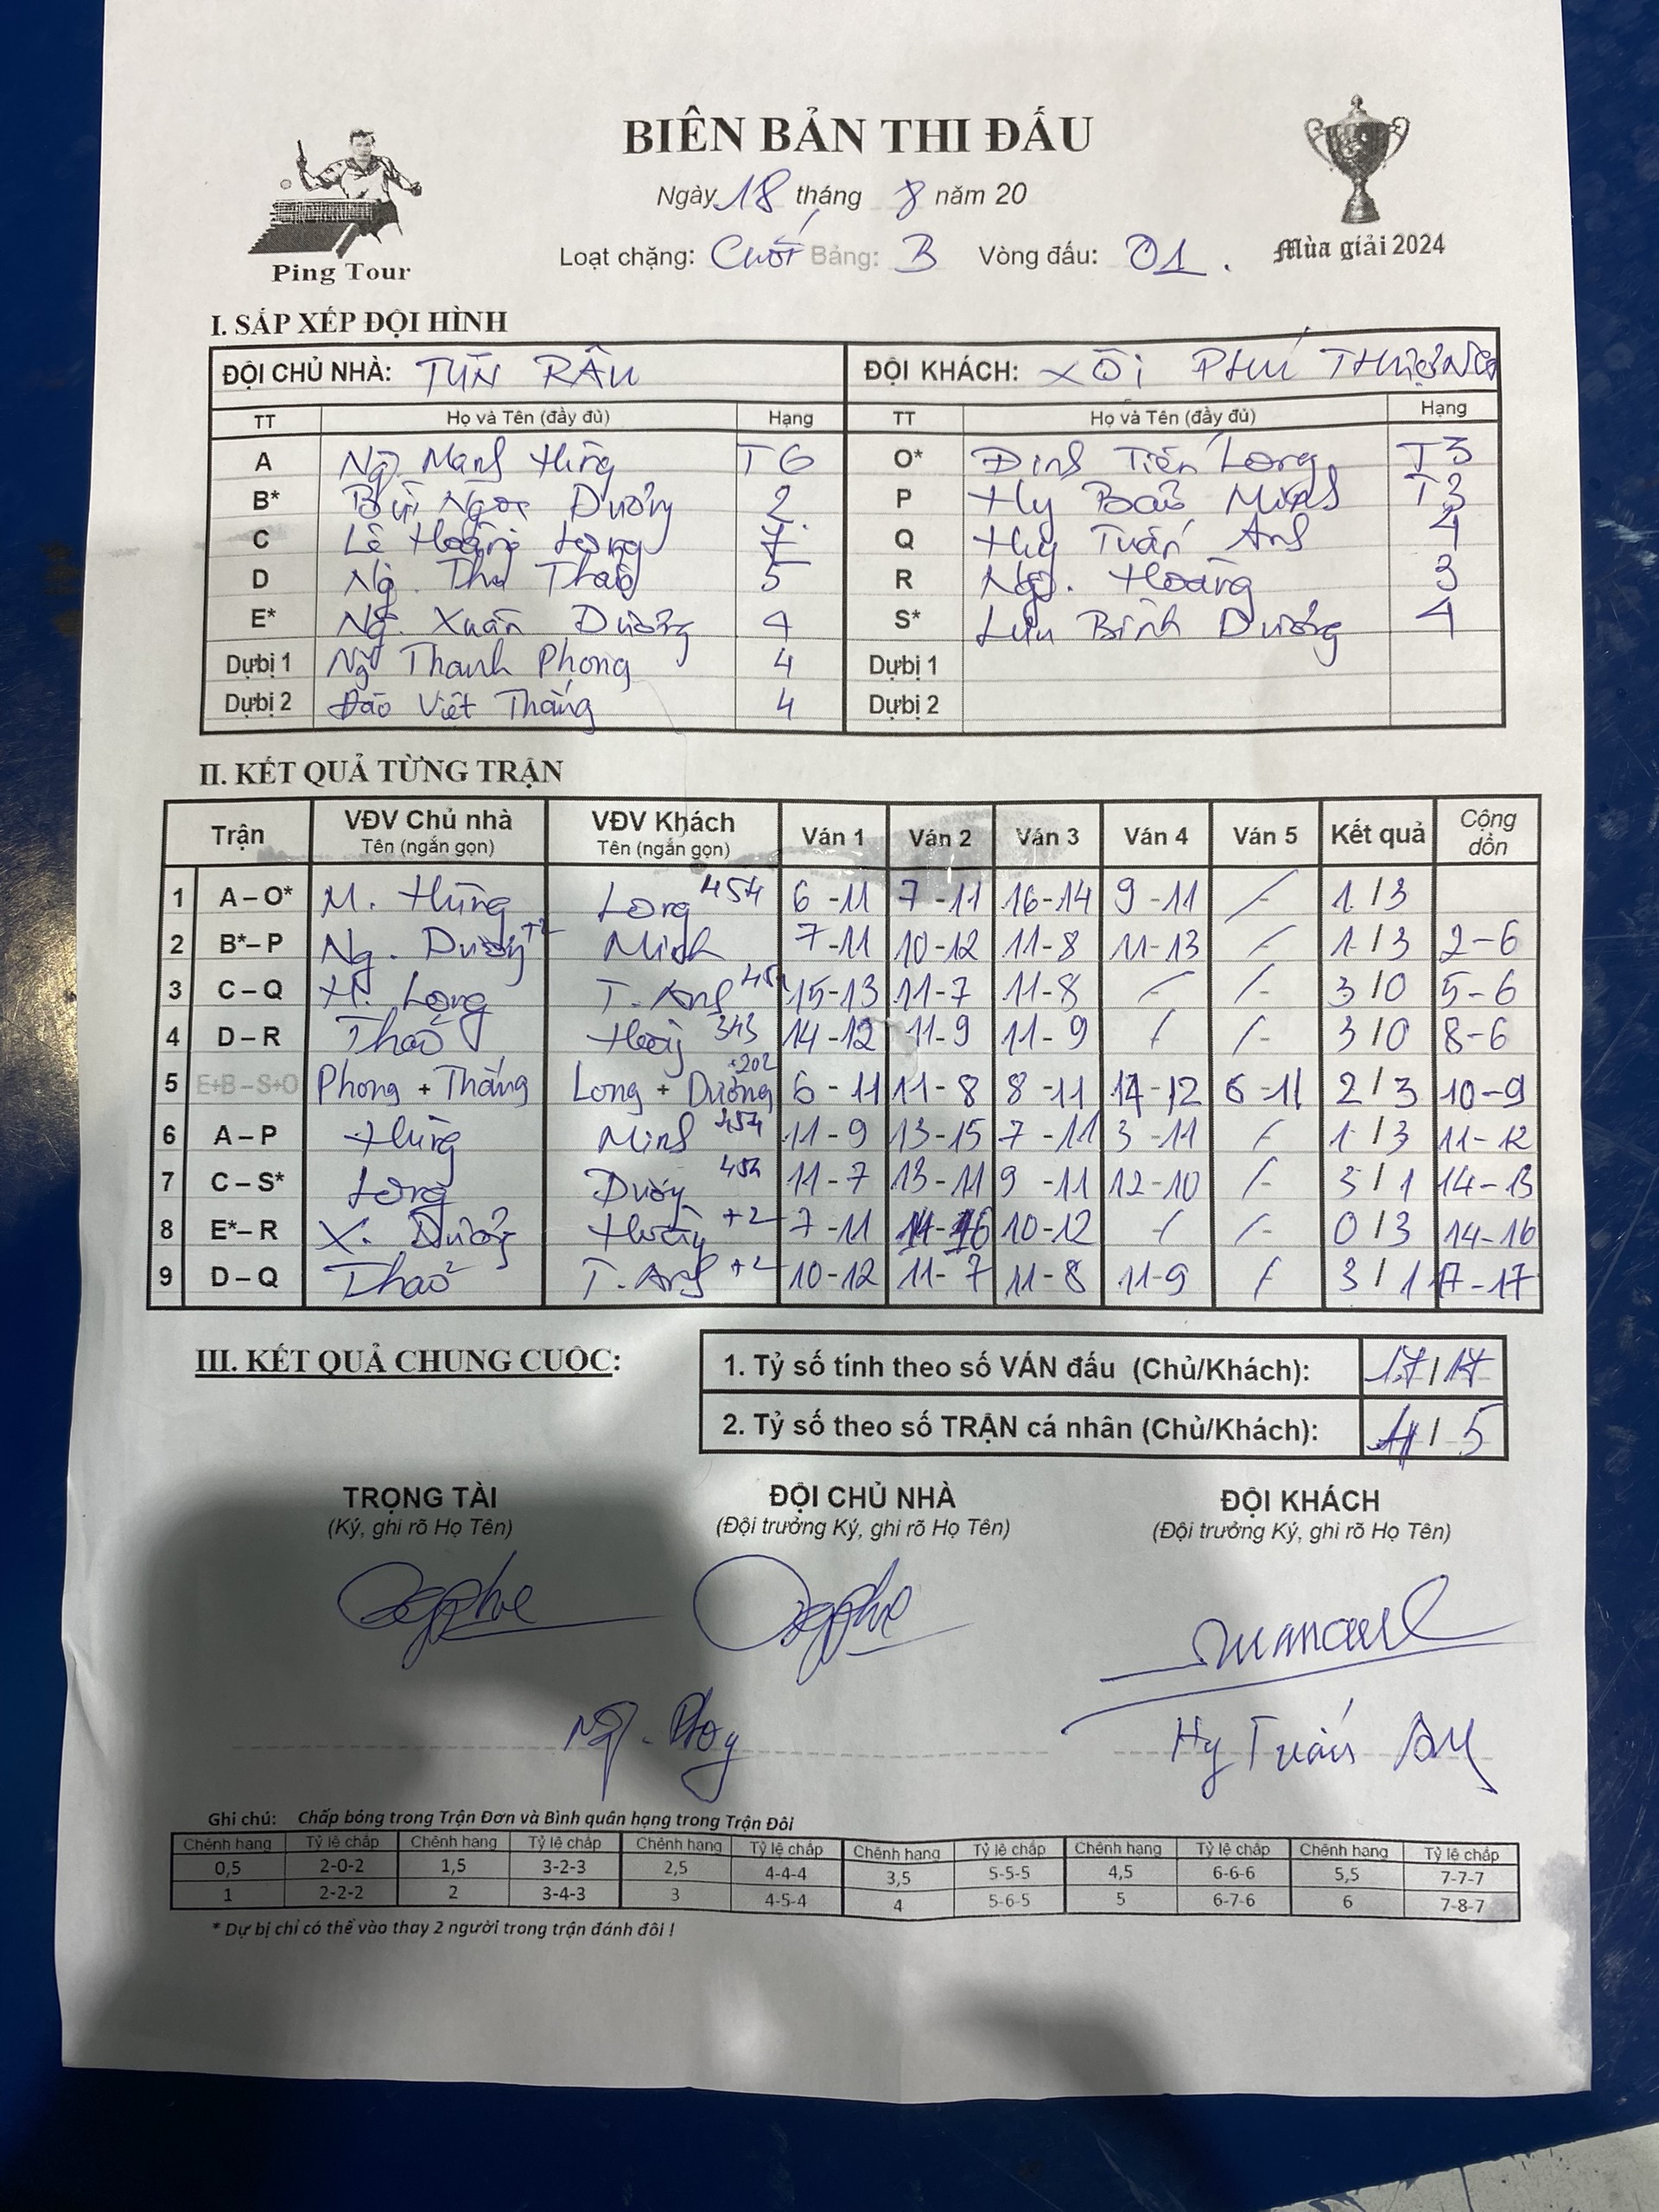 BIÊN BẢN THI ĐẤU
Ngày 18 tháng 8 năm 20
Loạt chặng: Cuối Bảng: B Vòng đấu: 01.
Ping Tour
Mùa giải 2024
I. SẮP XẾP ĐỘI HÌNH
ĐỘI CHỦ NHÀ: TÙN RÂU ĐỘI KHÁCH: XÔI PHÚ THƯỢNG
TT Họ và Tên (đầy đủ) Hạng TT Họ và Tên (đầy đủ) Hạng
A Ng Mạnh Hùng T6 O* Đinh Tiến Long T3
B* Bùi Ngọc Dương 2 P Hy Bảo Minh T3
C Lê Hoàng Long 7 Q Hy Tuấn Anh 4
D Ng. Thu Thảo 5 R Ng. Hoàng 3
E* Ng. Xuân Dương 4 S* Lưu Bình Dương 4
Dự bị 1 Ng Thanh Phong 4 Dự bị 1
Dự bị 2 Đào Việt Thắng 4 Dự bị 2
II. KẾT QUẢ TỪNG TRẬN
Trận VĐV Chủ nhà Tên (ngắn gọn) VĐV Khách Tên (ngắn gọn) Ván 1 Ván 2 Ván 3 Ván 4 Ván 5 Kết quả Cộng dồn
1 A – O* M. Hùng Long 454 6 - 11 7 - 11 16 - 14 9 - 11 / 1 / 3
2 B* – P Ng. Dương +2 Minh 7 - 11 10 - 12 11 - 8 11 - 13 / 1 / 3 2 - 6
3 C – Q H. Long T. Anh 454 15 - 13 11 - 7 11 - 8 / / 3 / 0 5 - 6
4 D – R Thảo Hoàng 343 14 - 12 11 - 9 11 - 9 / / 3 / 0 8 - 6
5 E+B – S+O Phong + Thắng Long + Dương +202 6 - 11 11 - 8 8 - 11 14 - 12 6 - 11 2 / 3 10 - 9
6 A – P Hùng Minh 454 11 - 9 13 - 15 7 - 11 3 - 11 / 1 / 3 11 - 12
7 C – S* Long Dương 454 11 - 7 13 - 11 9 - 11 12 - 10 / 3 / 1 14 - 13
8 E* – R X. Dương Hoàng +2 7 - 11 14 - 16 10 - 12 / / 0 / 3 14 - 16
9 D – Q Thảo T. Anh +2 10 - 12 11 - 7 11 - 8 11 - 9 / 3 / 1 17 - 17
III. KẾT QUẢ CHUNG CUỘC:
1. Tỷ số tính theo số VÁN đấu (Chủ/Khách): 17 / 17
2. Tỷ số theo số TRẬN cá nhân (Chủ/Khách): 4 / 5
TRỌNG TÀI ĐỘI CHỦ NHÀ ĐỘI KHÁCH
(Ký, ghi rõ Họ Tên) (Đội trưởng Ký, ghi rõ Họ Tên) (Đội trưởng Ký, ghi rõ Họ Tên)
Ng. Phong
Hy Tuấn Anh
Ghi chú: Chấp bóng trong Trận Đơn và Bình quân hạng trong Trận Đôi
Chênh hạng Tỷ lệ chấp Chênh hạng Tỷ lệ chấp Chênh hạng Tỷ lệ chấp Chênh hạng Tỷ lệ chấp Chênh hạng Tỷ lệ chấp Chênh hạng Tỷ lệ chấp
0,5 2-0-2 1,5 3-2-3 2,5 4-4-4 3,5 5-5-5 4,5 6-6-6 5,5 7-7-7
1 2-2-2 2 3-4-3 3 4-5-4 4 5-6-5 5 6-7-6 6 7-8-7
* Dự bị chỉ có thể vào thay 2 người trong trận đánh đôi !